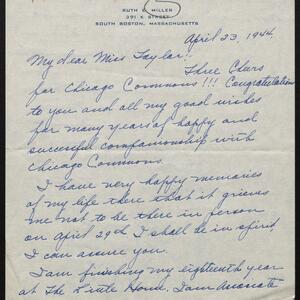 RUTH E. MILLER
391 K STREET
SOUTH BOSTON, MASSACHUSETTS
April 23, 1944.
My dear Miss Taylor:
Three Cheers
for Chicago Commons!!! Congratulations
to you and all my good wishes
for many years of happy and
successful companionship with
Chicago Commons.
I have very happy memories
of my life there that it grieves
me not to be there in person
on April 29th I shall be in spirit,
I can assure you.
I am finishing my eighteenth year
at The Little House, I am Associate